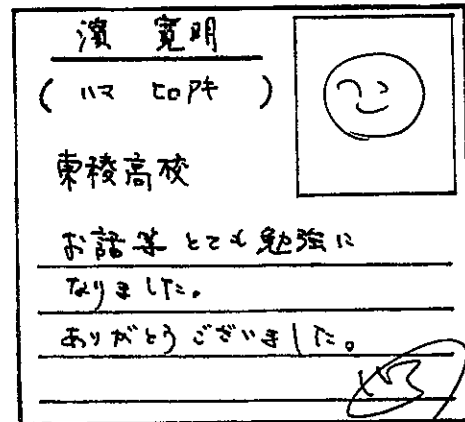 濱 寛明
(ハマ ヒロアキ)
東稜高校
お話等とても勉強に
なりました。
ありがとうございました。